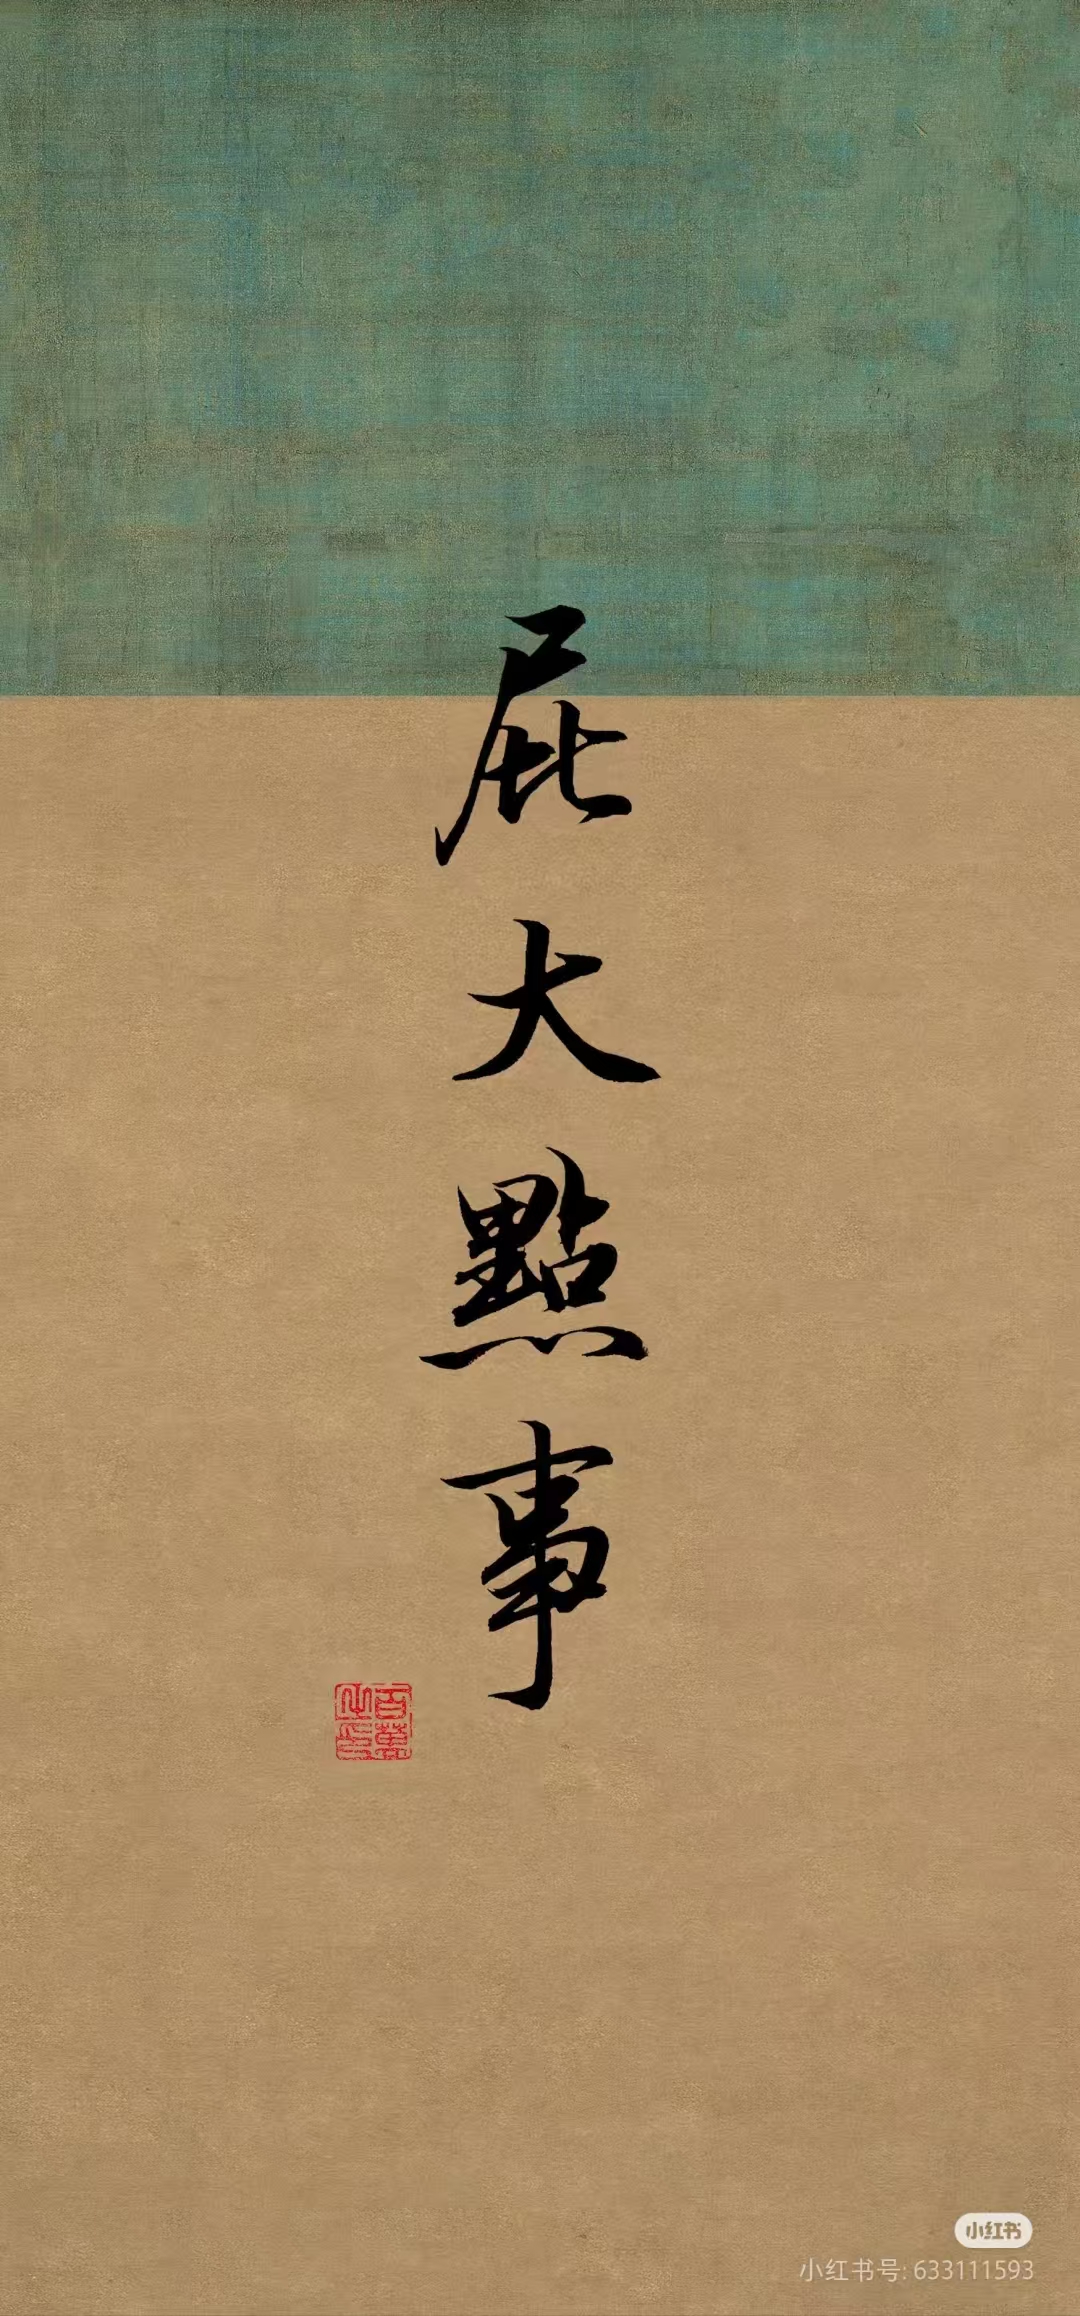 屁大點事
小红书
小红书号: 633111593